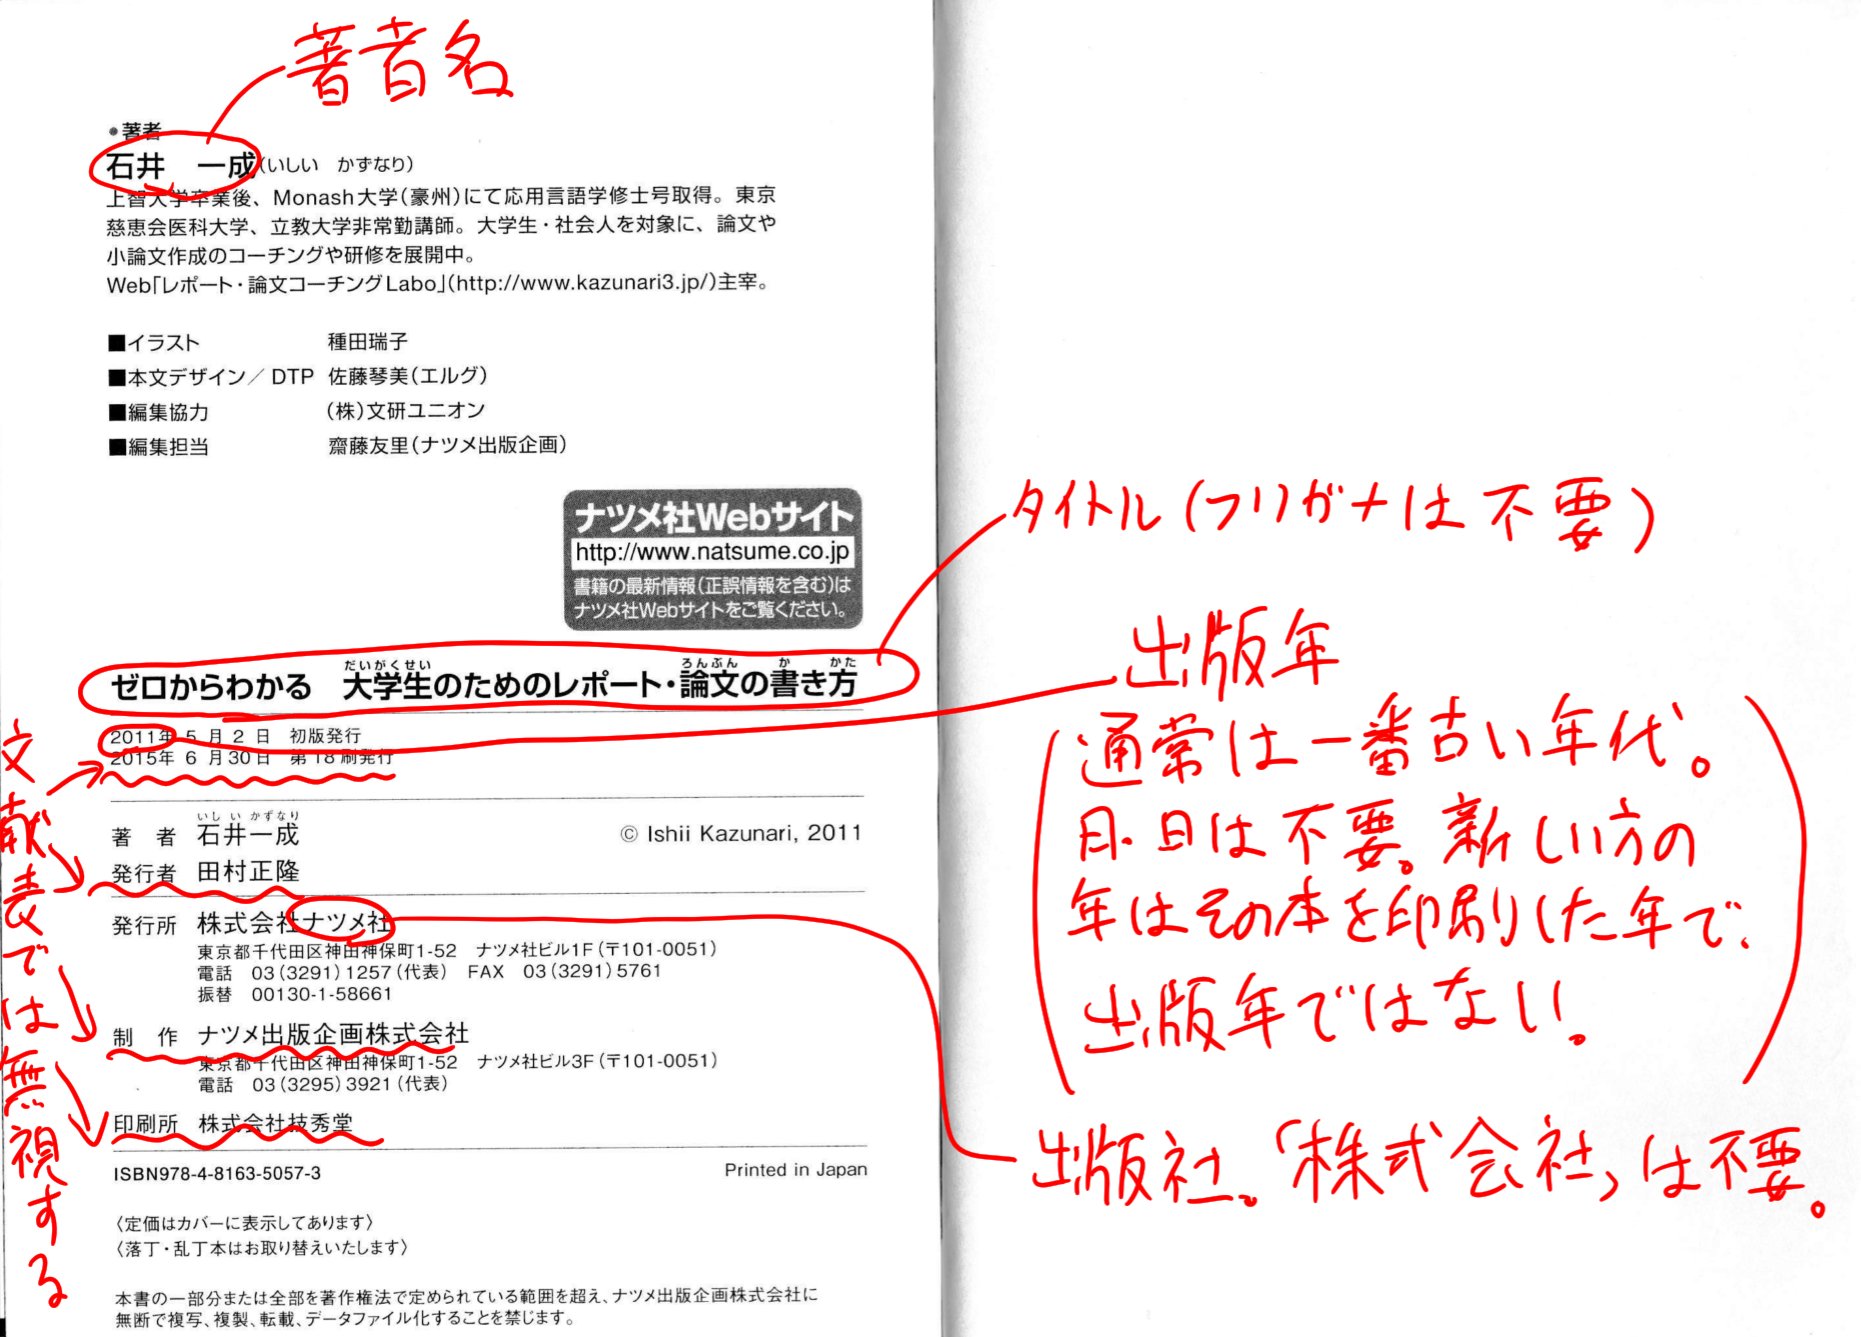 著者名
●著者
石井 一成(いしい かずなり)
上智大学卒業後、Monash大学(豪州)にて応用言語学修士号取得。東京
慈恵会医科大学、立教大学非常勤講師。大学生・社会人を対象に、論文や
小論文作成のコーチングや研修を展開中。
Web「レポート・論文コーチングLabo」(http://www.kazunari3.jp/)主宰。
■イラスト 種田瑞子
■本文デザイン/DTP 佐藤琴美(エルグ)
■編集協力 (株)文研ユニオン
■編集担当 齋藤友里(ナツメ出版企画)
ナツメ社Webサイト
http://www.natsume.co.jp
書籍の最新情報(正誤情報を含む)は
ナツメ社Webサイトをご覧ください。
タイトル(フリガナは不要)
だいがくせい ろんぶん か かた
ゼロからわかる 大学生のためのレポート・論文の書き方
2011年 5 月 2 日 初版発行
2015年 6 月30日 第18刷発行
出版年
(通常は一番古い年代。
月・日は不要。新しい方の
年はその本を印刷した年で、
出版年ではない。)
文献表では無視する
いし い かずなり
著 者 石井一成 © Ishii Kazunari, 2011
発行者 田村正隆
発行所 株式会社ナツメ社
東京都千代田区神田神保町1-52 ナツメ社ビル1F(〒101-0051)
電話 03(3291)1257(代表) FAX 03(3291)5761
振替 00130-1-58661
制 作 ナツメ出版企画株式会社
東京都千代田区神田神保町1-52 ナツメ社ビル3F(〒101-0051)
電話 03(3295)3921(代表)
印刷所 株式会社技秀堂
出版社。「株式会社」は不要。
ISBN978-4-8163-5057-3 Printed in Japan
〈定価はカバーに表示してあります〉
〈落丁・乱丁本はお取り替えいたします〉
本書の一部分または全部を著作権法で定められている範囲を超え、ナツメ出版企画株式会社に
無断で複写、複製、転載、データファイル化することを禁じます。